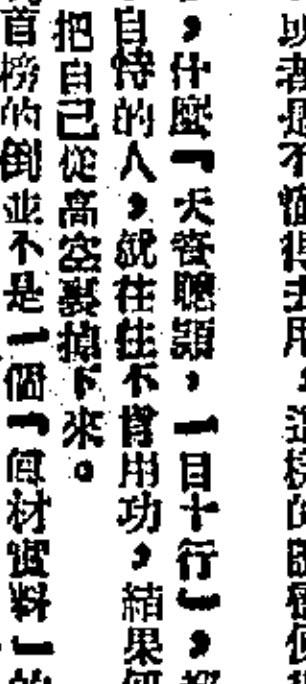 或者是不懂得去用，這樣的
，什麼「天資聰穎，一目十行」，都
自恃的人，就往往不肯用功，結果何
把自己從高空裏摔下來。
首榜的倒並不是一個「眞材實料」的